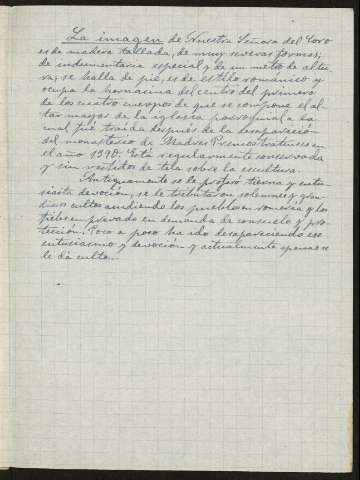 La imagen de Nuestra Señora del Toro
es de madera tallada, de muy severas formas,
de indumentaria especial y de un metro de altu-
ra; se halla de pie, es de estilo románico y
ocupa la hornacina del centro del primero
de los cuatro cuerpos de que se compone el al-
tar mayor de la iglesia parroquial a la
cual fué traida después de la desaparición
del monasterio de Madres Premostratenses en
el año 1590. Está regularmente conservada
y sin vestidos de tela sobre la escultura.
Antiguamente se le profesó tierna y entu-
siasta devoción, se le tributaron solemnes y gran-
diosos cultos acudiendo los pueblos en romería y los
fieles en privado en demanda de consuelo y pro-
tección. Poco a poco ha ido desapareciendo ese
entusiasmo y devoción y actualmente apenas se
le da culto.